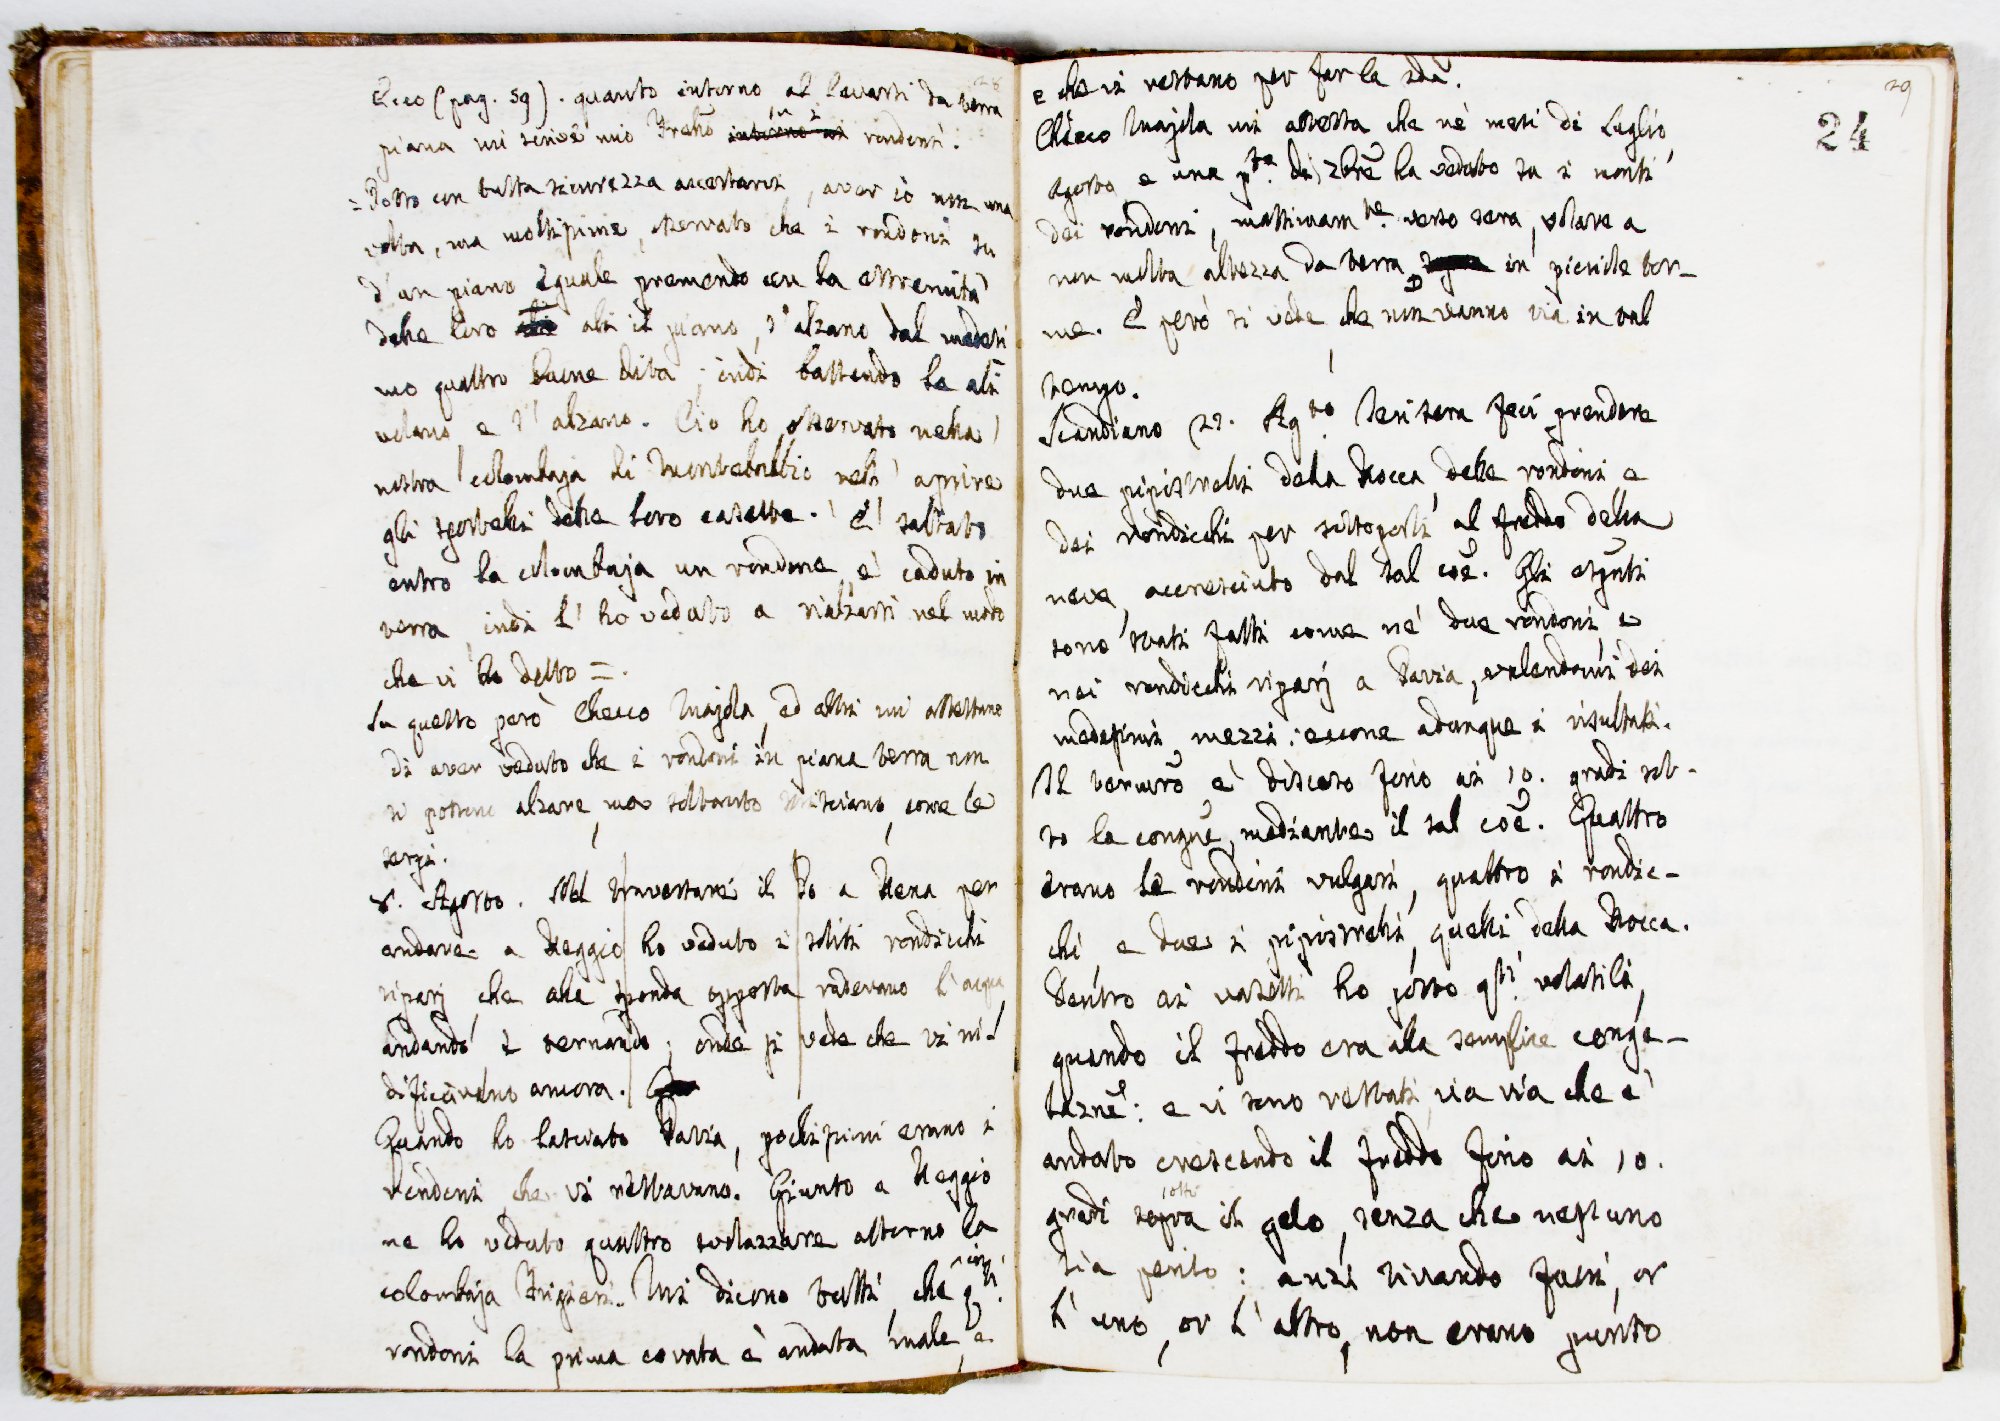 28
Ecco (pag. 59). quanto intorno al levarsi da terra
piana mi scrive mio Frello su i rondoni:
= Posso con tutta sicurezza accertarvi, aver io non una
volta, ma moltissime, osservato che i rondoni su
d'un piano eguale premendo con la estremità
delle loro ali il piano, s'alzano dal medesi
mo quattro buone dita; indi battendo le ali
volano e s'alzano. Ciò ho osservato nella
nostra colombaja di Montebabbio nell'aprire
gli sportelli delle loro casette. È saltato
entro la colombaja un rondone, è caduto in
terra, indi l'ho veduto a rialzarsi nel modo
che vi ho detto =.
Su questo però Checco Majola, ed altri mi attestano
di aver veduto che i rondoni in piana terra non
si possono alzare, ma soltanto strisciano, come le
serpi.
8. Agosto. Nel traversare il Po a Mena per
andare a Reggio ho veduto i soliti rondicchi
riparj, che alla sponda opposta radevano l'acqua
andando e tornando; onde si vede che vi ni-
dificavano ancora.
Quando ho lasciato Pavia, pochissimi erano i
rondoni, che vi restavano. Giunto a Reggio
ne ho veduto quattro svolazzare attorno la
colombaja Mi dicono tutti, che in qsti
rondoni la prima covata è andata male, e
29
24
e che vi restano per far la 2da.
Checco Majola mi attesta che ne' mesi di Luglio,
Agosto e una pte di 7bre ha veduto su i monti
dei rondoni, massimamte verso sera, volare a
non molta altezza da terra in picciole tor-
me. E però si vede che non vanno via in tal
tempo.
Scandiano 22. Agto Jeri sera feci prendere
due pipistrelli della Rocca, delle rondini e
dei rondicchi per sottoporli al freddo della
neve, accresciuto dal sal coe. Gli espnti
sono stati fatti come ne' due rondoni e
nei rondicchi riparj a Pavia, valendomi dei
medesimi mezzi: eccone adunque i risultati.
Il termro è disceso fino ai 10. gradi sot-
to la congne, mediante il sal coe. Quattro
erano le rondini vulgari, quattro i rondic-
chi, e due i pipistrelli, quelli della Rocca.
Dentro ai vasetti ho posto qsti volatili,
quando il freddo era alla semplice conge-
lazne: e vi sono restati via via che è
andato crescendo il freddo fino ai 10.
sotto
gradi sopra il gelo, senza che nessuno
sia perito: anzi tirando fuori, or
l'uno, or l'altro, non erano punto